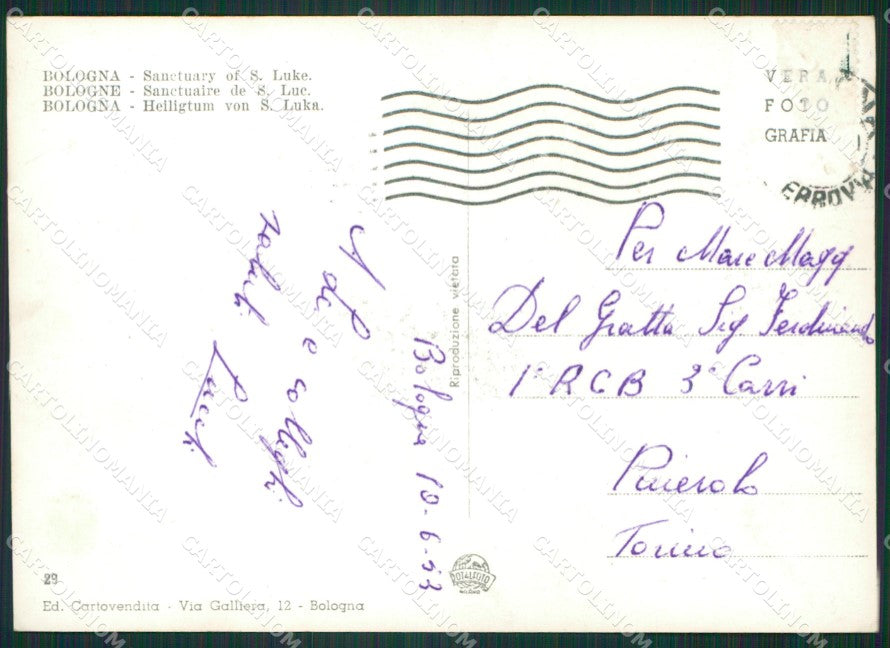 BOLOGNA - Sanctuary of S. Luke.
BOLOGNE - Sanctuaire de S. Luc.
BOLOGNA - Heiligtum von S. Luka.
VERA
FOTO
GRAFIA
FERROVIA
A
Lei e colleghi
saluti
Bologna 10-6-53
Riproduzione vietata
Per Mare Magg
Del Gratta Sig Ferdinando
1° R C B 3° Carri
Pinerolo
Torino
FOTALEGTO
MILANO
29
Ed. Cartovendita - Via Galliera, 12 - Bologna
CARTOLINOMANIA